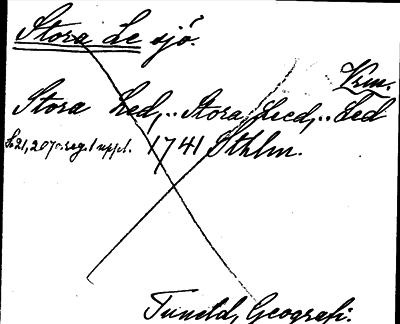 Stora Le sjö.
Vrm.
Stora Led, .. Stora Leed, .. Led
S. 21, 207 o. reg. 1 uppl. 1741 Sthlm.
Tuneld, Geografi.